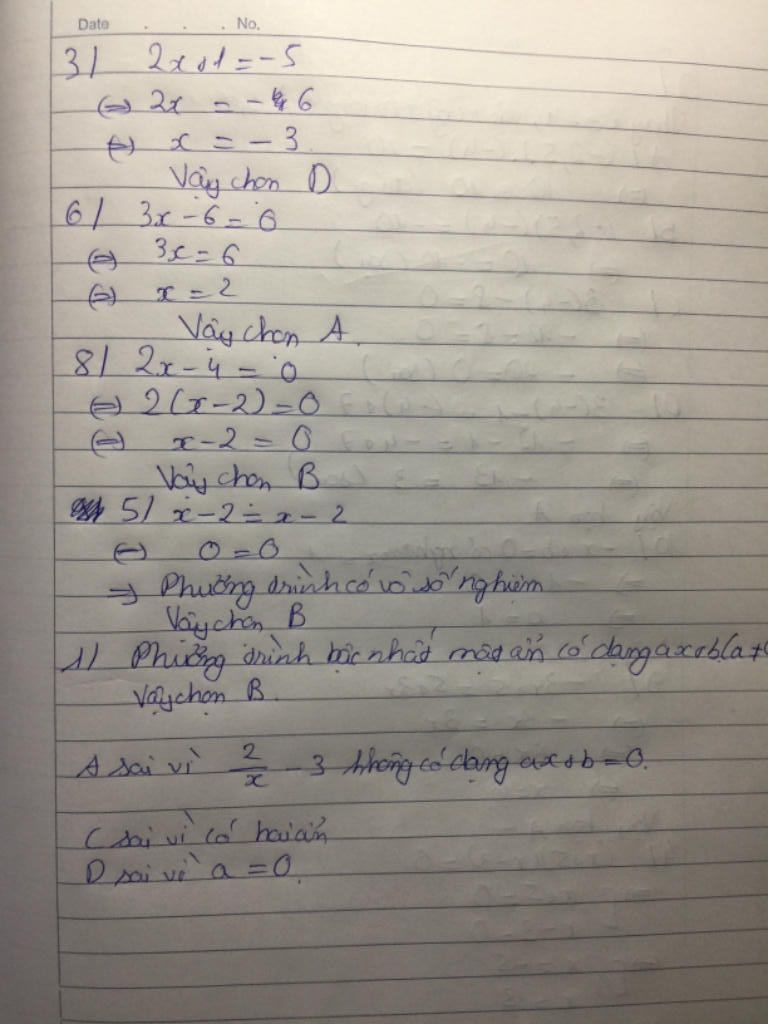 Date . . . No.
3/ 2x+1=-5
(=) 2x = -6
(=) x = -3
Vậy chọn D
6/ 3x-6=0
(=) 3x=6
(=) x=2
Vậy chọn A
8/ 2x-4=0
(=) 2(x-2)=0
(=) x-2=0
Vậy chọn B
5/ x-2=x-2
(=) 0=0
=> Phương trình có vô số nghiệm
Vậy chọn B
1/ Phương trình bậc nhất một ẩn có dạng ax+b(a≠0
Vậy chọn B.
A sai vì 2/x - 3 không có dạng ax+b=0.
C sai vì có hai ẩn
D sai vì a=0.